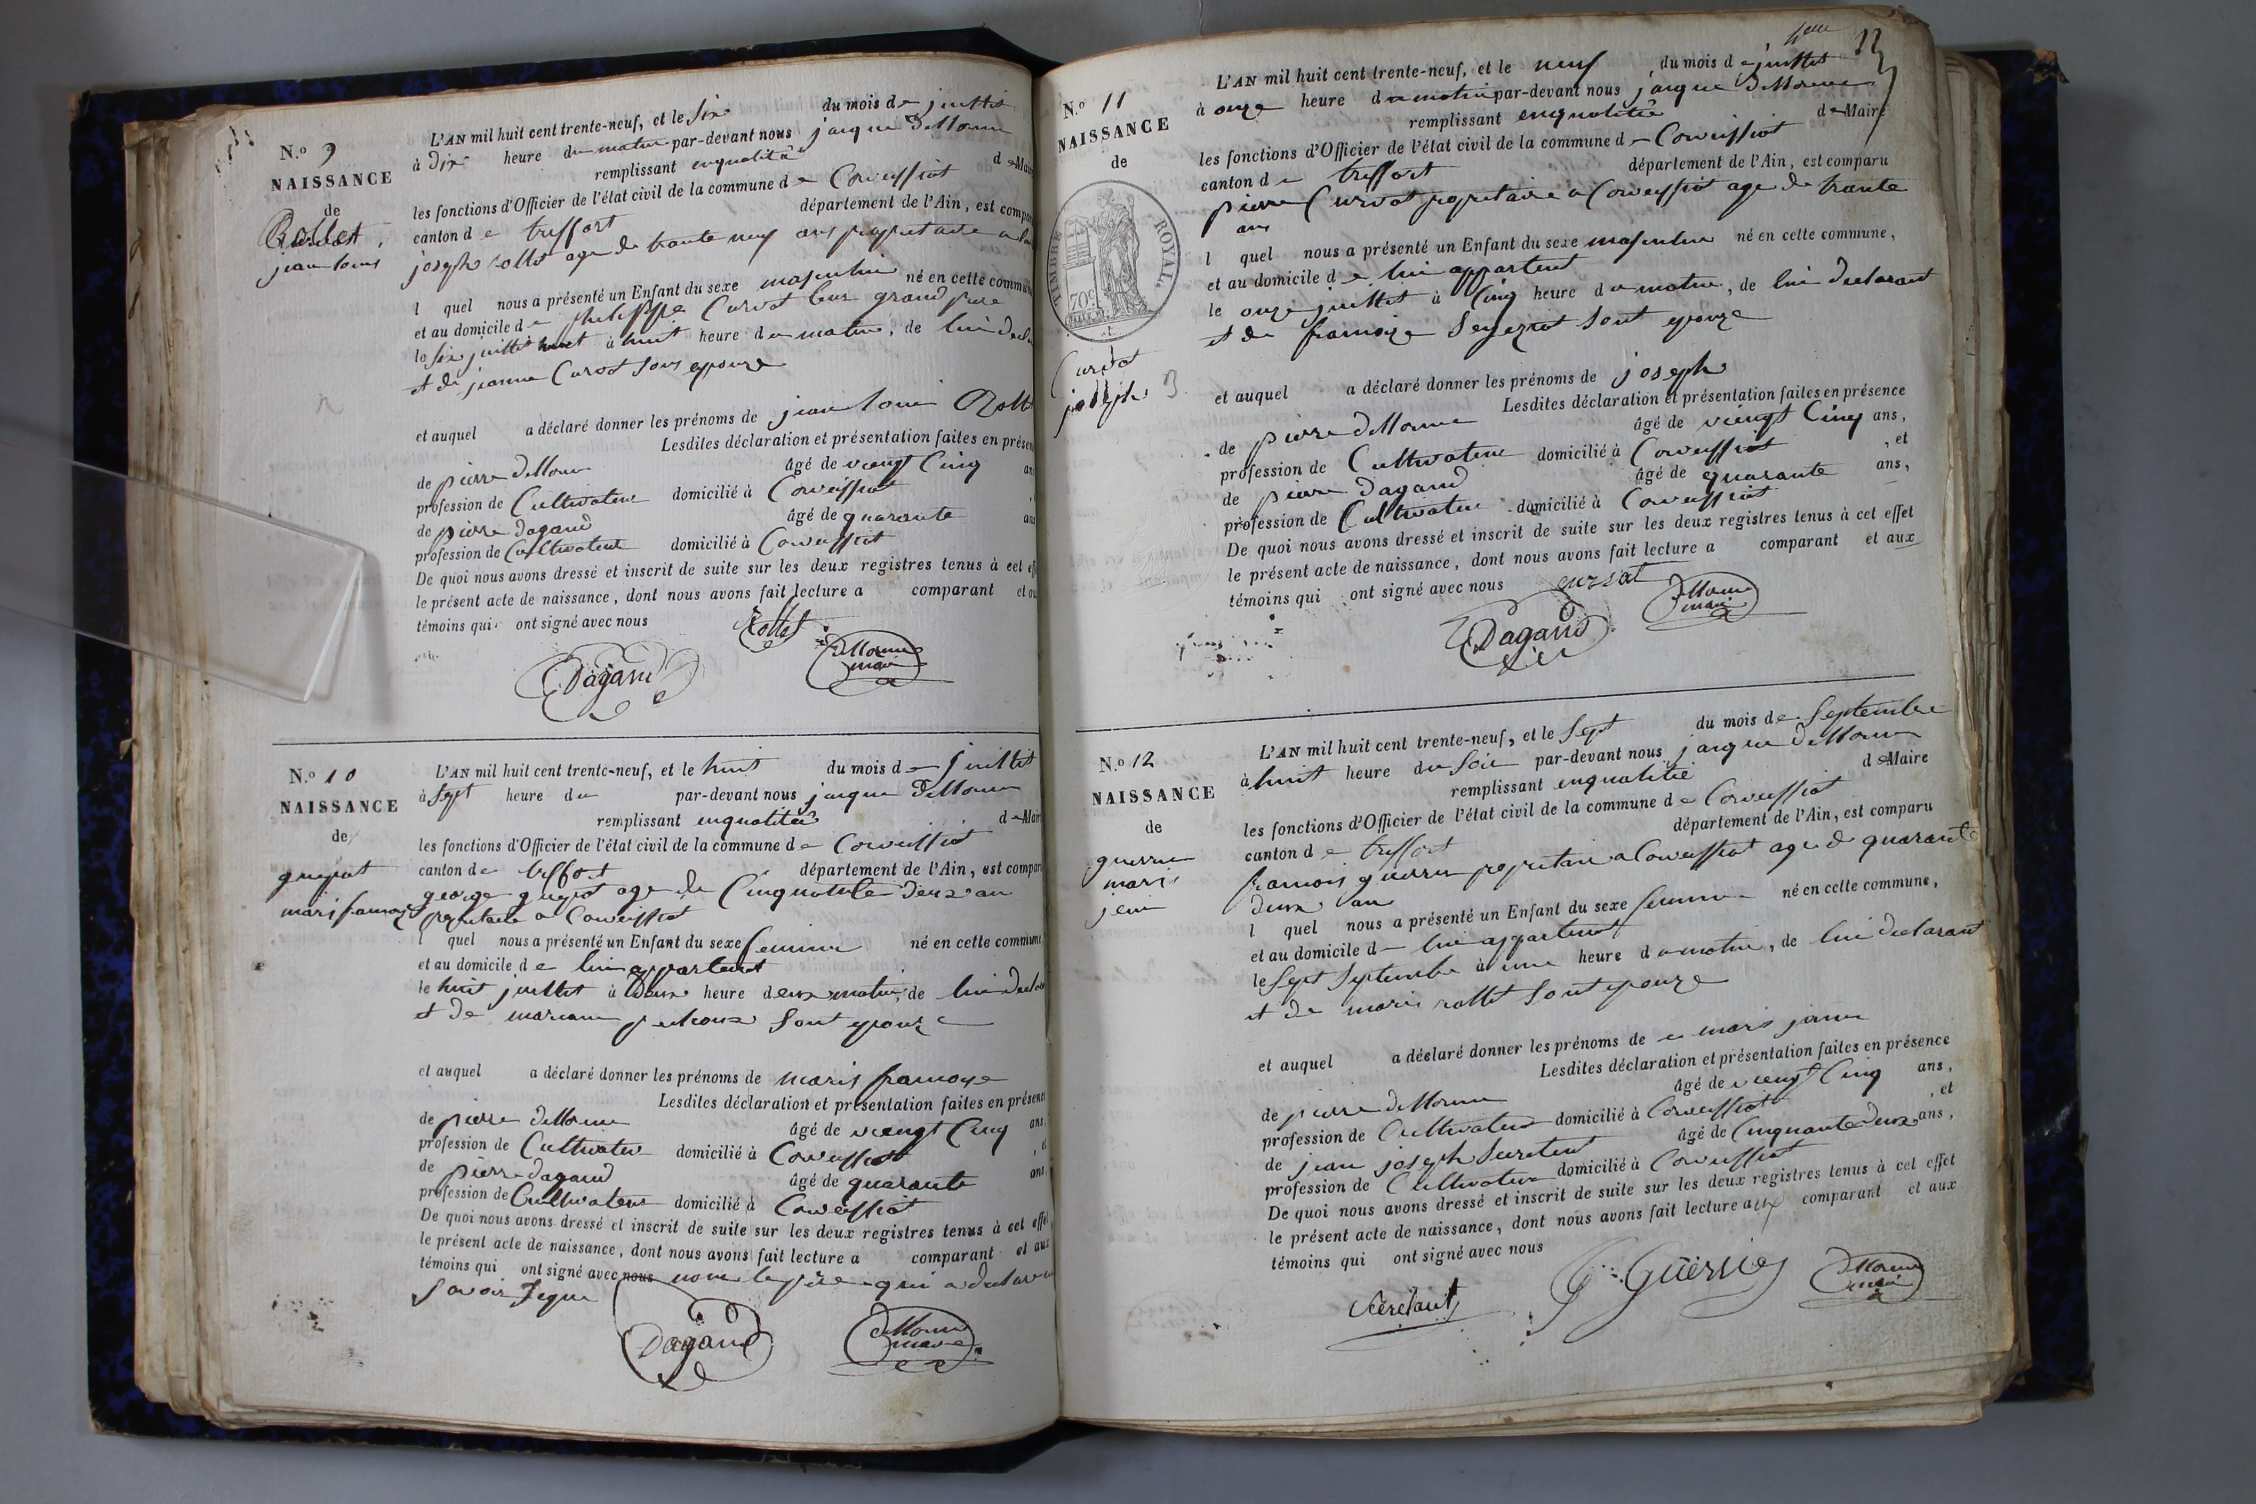 N.o 9
NAISSANCE
de
Rollet
jean louis
L'AN mil huit cent trente-neuf, et le six du mois de juillet
à dix heure du matin par-devant nous jacque dellorme
remplissant enqualité de Mai
les fonctions d'Officier de l'état civil de la commune de Corveissiat
canton de treffort département de l'Ain, est compa
joseph rollet age de trante neuf ans propietaire a
l quel nous a présenté un Enfant du sexe masculin né en cette commu
et au domicile de philippe Curvat leur grand pere
le six juillet à huit heure du matin, de lui decl
et de jeanne Curvat sons epouze
et auquel a déclaré donner les prénoms de jean loui Roll
Lesdites déclaration et présentation faites en présen
de pierre dellorme âgé de viengt Cinq an
profession de Cultivateur domicilié à Corveissiat
de pierre dagand âgé de quarante ans
profession de Cultivateur domicilié à Corveissiat
De quoi nous avons dressé et inscrit de suite sur les deux registres tenus à cet eff
le présent acte de naissance, dont nous avons fait lecture a comparant et au
témoins qui ont signé avec nous
Rollet
Dagand
dellorme
maire
N.o 10
NAISSANCE
de
gueyrat
mari framoize
L'AN mil huit cent trente-neuf, et le huit du mois de juillet
à sept heure du par-devant nous jacque dellorme
remplissant enqualitée de Mair
les fonctions d'Officier de l'état civil de la commune de Corveissiat
canton de treffort département de l'Ain, est compar
george age de Cinquante deux an
propietaire a Corveissiat
l quel nous a présenté un Enfant du sexe feminin né en cette commune
et au domicile de lui appartenant
le huit juillet à deux heure deux matin, de lui decla
et de mariann sont epouze
et auquel a déclaré donner les prénoms de marie framoize
Lesdites déclaration et présentation faites en présence
de pierre dellorme âgé de viengt Cinq ans
profession de Cultivateur domicilié à Corveissiat , et
de pierre dagand âgé de quarante ans
profession de Cultivateur domicilié à Corveissiat
De quoi nous avons dressé et inscrit de suite sur les deux registres tenus à cet effet
le présent acte de naissance, dont nous avons fait lecture a comparant et aux
témoins qui ont signé avec nous non le père qui a declare
savoir
Dagand
dellorme
maire
11
N.o 11
NAISSANCE
de
TIMBRE ROYAL
70c
Curvat
joseph 3
L'AN mil huit cent trente-neuf, et le neuf du mois de juillet
à onze heure du matin par-devant nous jacque dellorme
remplissant enqualité de Maire
les fonctions d'Officier de l'état civil de la commune de Corveissiat
canton de treffort département de l'Ain, est comparu
pierre Curvat propietaire a Corveissiat age de trante
ans
l quel nous a présenté un Enfant du sexe masculin né en cette commune,
et au domicile de lui appartenent
le onze juillet à Cinq heure du matin, de lui declarant
et de framoize sont epouze
et auquel a déclaré donner les prénoms de joseph
Lesdites déclaration et présentation faites en présence
de pierre dellorme âgé de viengt Cinq ans,
profession de Cultivateur domicilié à Corveissiat , et
de pierre dagand âgé de quarante ans,
profession de Cultivateur domicilié à Corveissiat
De quoi nous avons dressé et inscrit de suite sur les deux registres tenus à cet effet
le présent acte de naissance, dont nous avons fait lecture a comparant et aux
témoins qui ont signé avec nous curvat
Dagand
dellorme
maire
N.o 12
NAISSANCE
de
guerrin
mari
jenn
L'AN mil huit cent trente-neuf, et le sept du mois de septembre
à huit heure du soir par-devant nous jacque dellorme
remplissant enqualitie de Maire
les fonctions d'Officier de l'état civil de la commune de Corveissiat
canton de treffort département de l'Ain, est comparu
framois guerrin propietaire a Corveissiat age de quarante
deux an
l quel nous a présenté un Enfant du sexe feminin né en cette commune,
et au domicile de lui appartenent
le sept septembre à une heure du matin, de lui declarant
et de marie rollet sont epouze
et auquel a déclaré donner les prénoms de marie jeanne
Lesdites déclaration et présentation faites en présence
de pierre dellorme âgé de viengt Cinq ans,
profession de Cultivateur domicilié à Corveissiat , et
de jean joseph seretent âgé de Cinquante deux ans,
profession de Cultivateur domicilié à Corveissiat
De quoi nous avons dressé et inscrit de suite sur les deux registres tenus à cet effet
le présent acte de naissance, dont nous avons fait lecture aux comparant et aux
témoins qui ont signé avec nous
Séretant
Guerrie
dellorme
maire